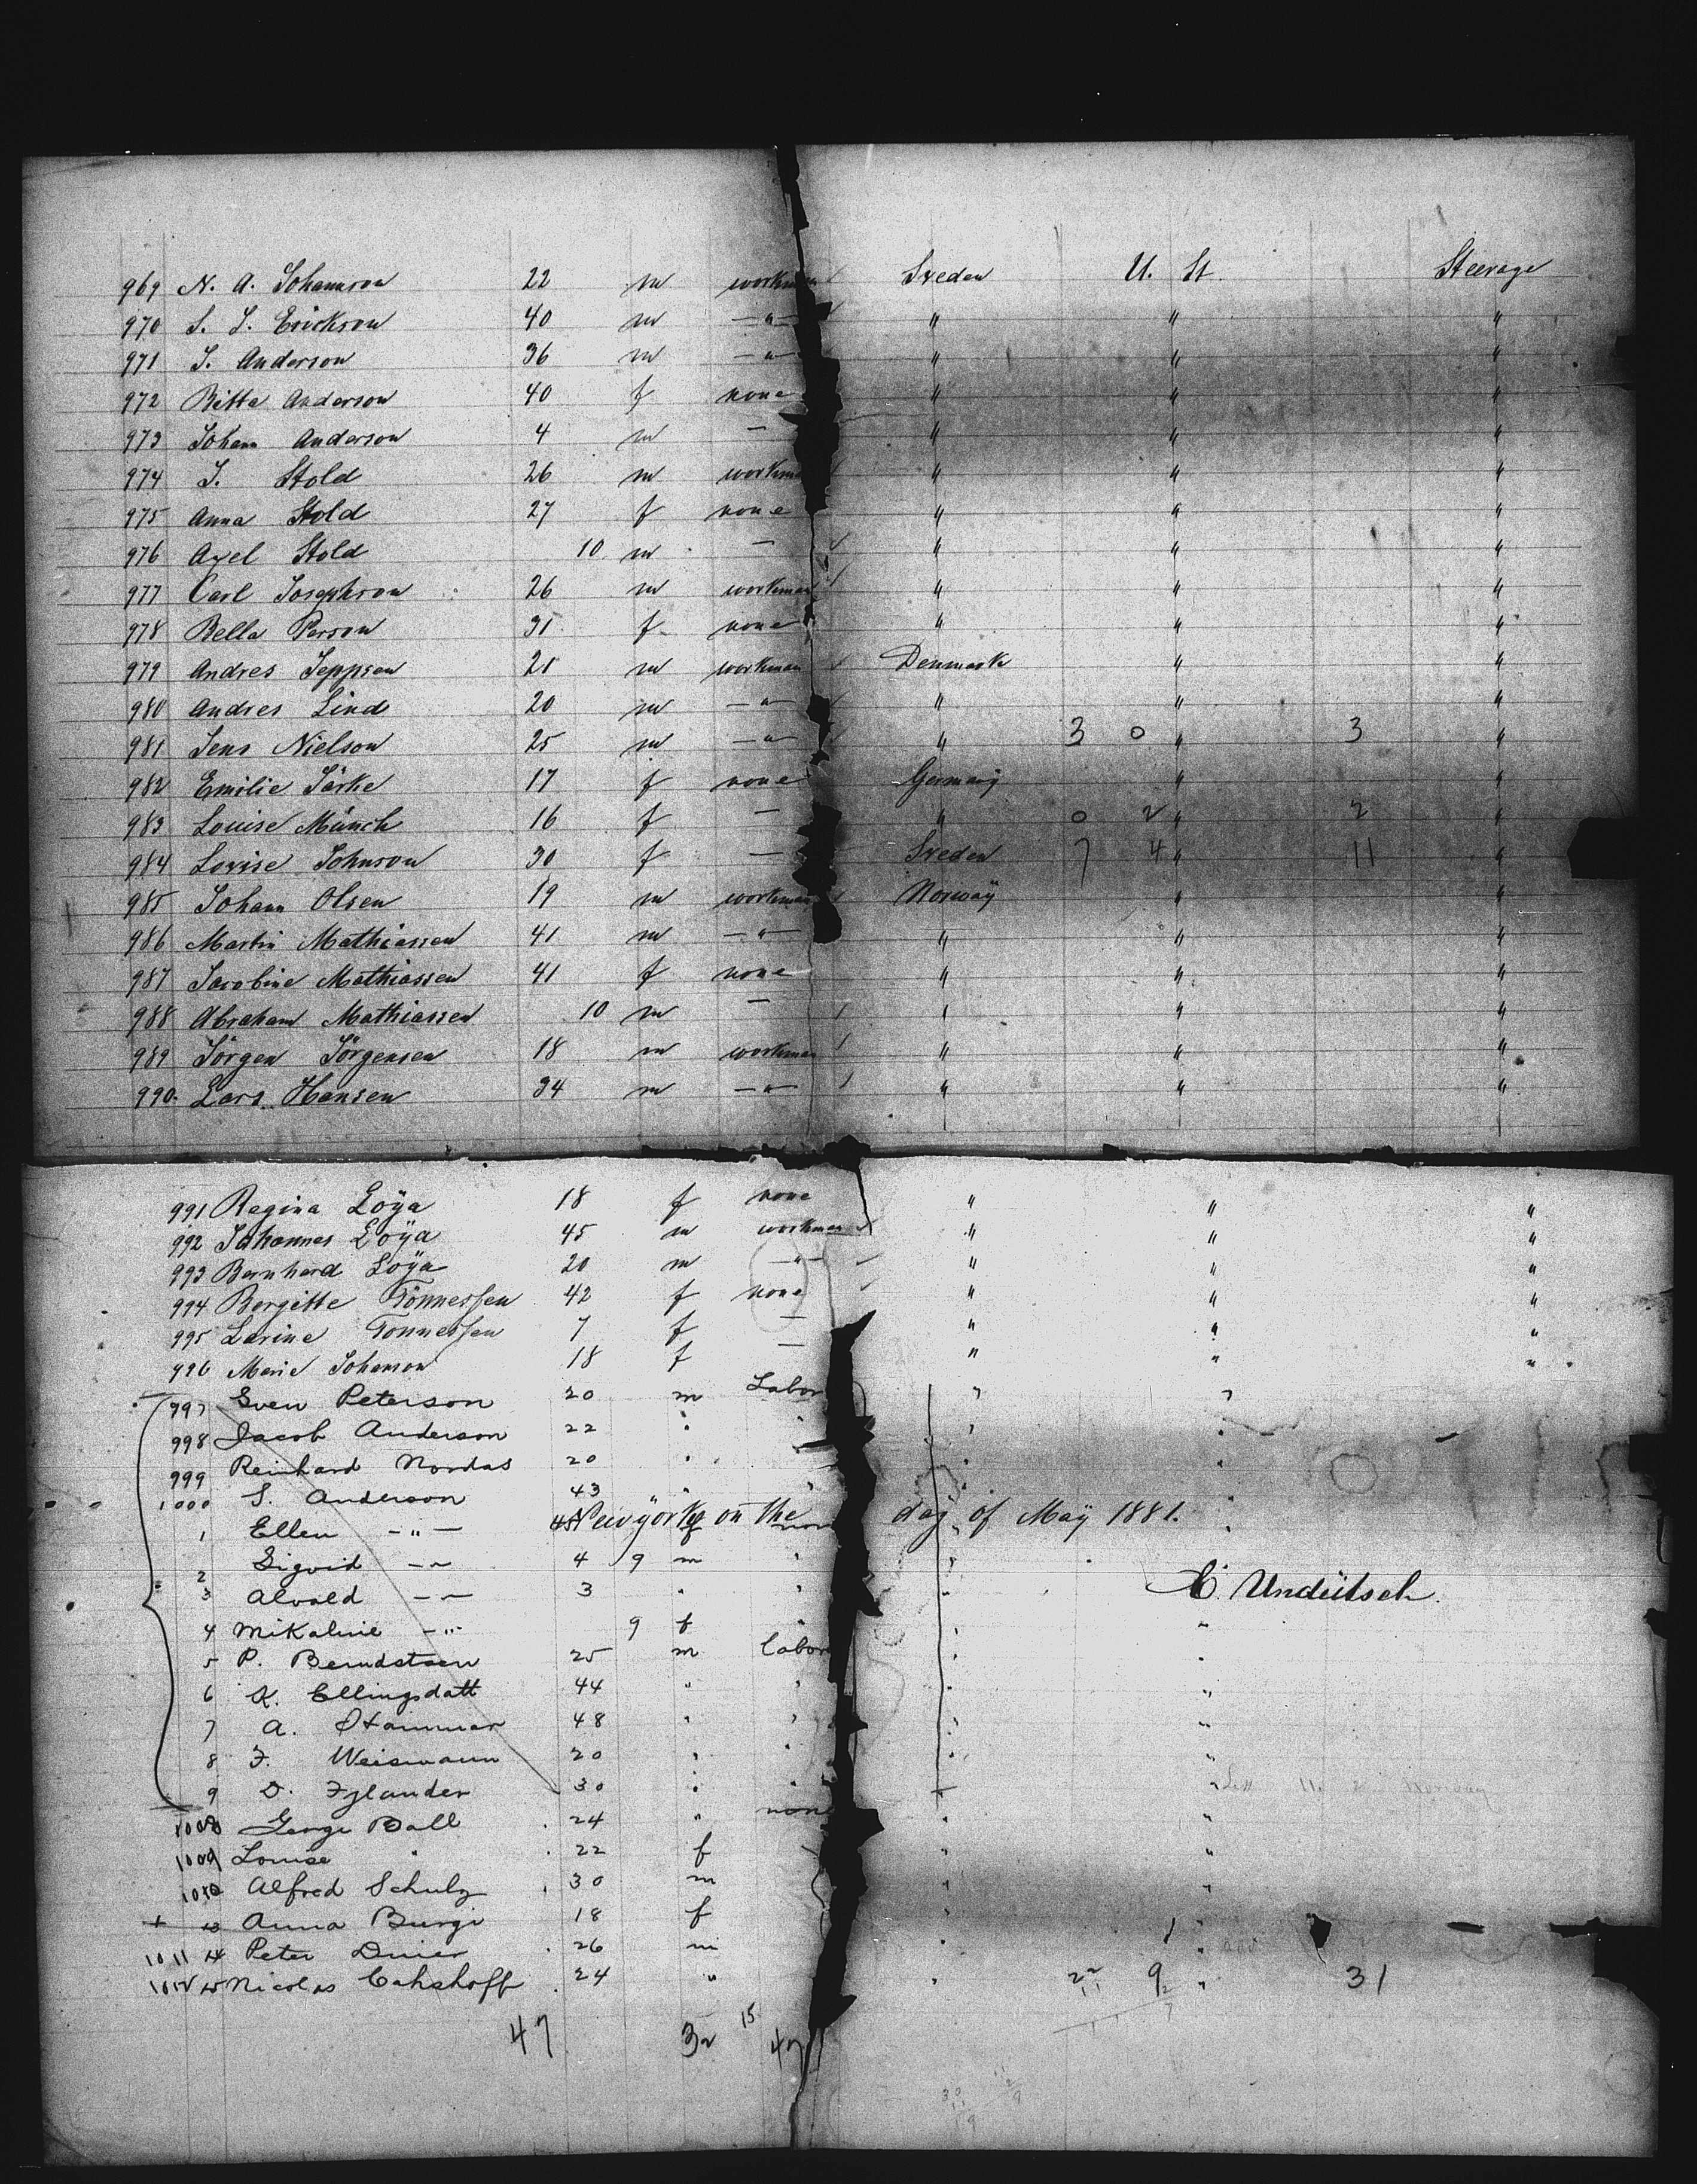 969 N. A. Johannson 22 m workman Sveden U. St. Steevage
970 S. J. Erickson 40 m —"— " " "
971 J. Anderson 36 m —"— " " "
972 Bitta Anderson 40 f none " " "
973 Johann Anderson 4 m — " " "
974 J. Stold 26 m workman " " "
975 Anna Stold 27 f none " " "
976 Axel Stold 10 m — " " "
977 Carl Josephson 26 m workman " " "
978 Bella Person 31 f none " " "
979 Andres Jeppsen 21 m workman Denmark " "
980 Andres Lind 20 m —"— " " "
981 Jens Nielson 25 m —"— " 3 0 " 3 "
982 Emilie Järke 17 f none Germany " "
983 Louise Münch 16 f — " 0 2 " 2 "
984 Lovise Johnson 30 f — Sveden 7 4 " 11 "
985 Johann Olsen 19 m workman Norway " "
986 Martin Mathiassen 41 m —"— " " "
987 Jacobine Mathiassen 41 f none " " "
988 Abraham Mathiassen 10 m — " " "
989 Jörgen Jörgensen 18 m workman " " "
990. Lars Hansen 34 m —"— " " "
991 Regina Loÿa 18 f none " " "
992 Johannes Loÿa 45 m workman " " "
993 Bernhard Loÿa 20 m —"— " " "
994 Borgitte Tönnessen 42 f none " " "
995 Larine Tonnessen 7 f — " " "
996 Marie Johanson 18 f — " " "
997 Sven Peterson 20 m Labor " "
998 Jacob Anderson 22 " " " "
999 Reinhard Nordas 20 " " " "
1000 S. Anderson 43 " " "
1 Ellen —"— f Newyork on the day of May 1881.
2 Sigvid —"— 4 9 m " "
3 Alvald —"— 3 " " " C. Undeütsch.
4 Mikaline —"— 9 f " " "
5 P. Berndtsen 25 m labor " "
6 K. Ellingsdatt 44 " " " "
7 A. Stammar 48 " " " "
8 F. Weismann 20 " " " "
9 D. Fylander 30 " " "
1008 George Ball 24 " none " "
1009 Louise " 22 f " "
1010 Alfred Schulz 30 m " "
+ 13 Anna Burgi 18 f " 1 "
1011 14 Peter Dinier 26 m " "
1012 15 Nicolas Cahshoff 24 " " 22 9 " 31
47 32 15 47